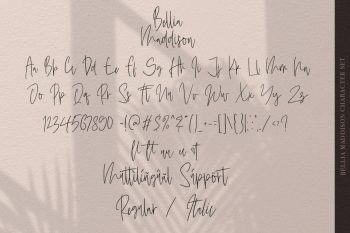 Bellia
Maddison
Aa Bb Cc Dd Ee Ff Gg Hh Ii Jj Kk Ll Mm Nn
Oo Pp Qq Rr Ss Tt Uu Vv Ww Xx Yy Zz
1234567890
Multilingual Support
Regular / Italic
BELLIA MADDISON CHARACTER SET